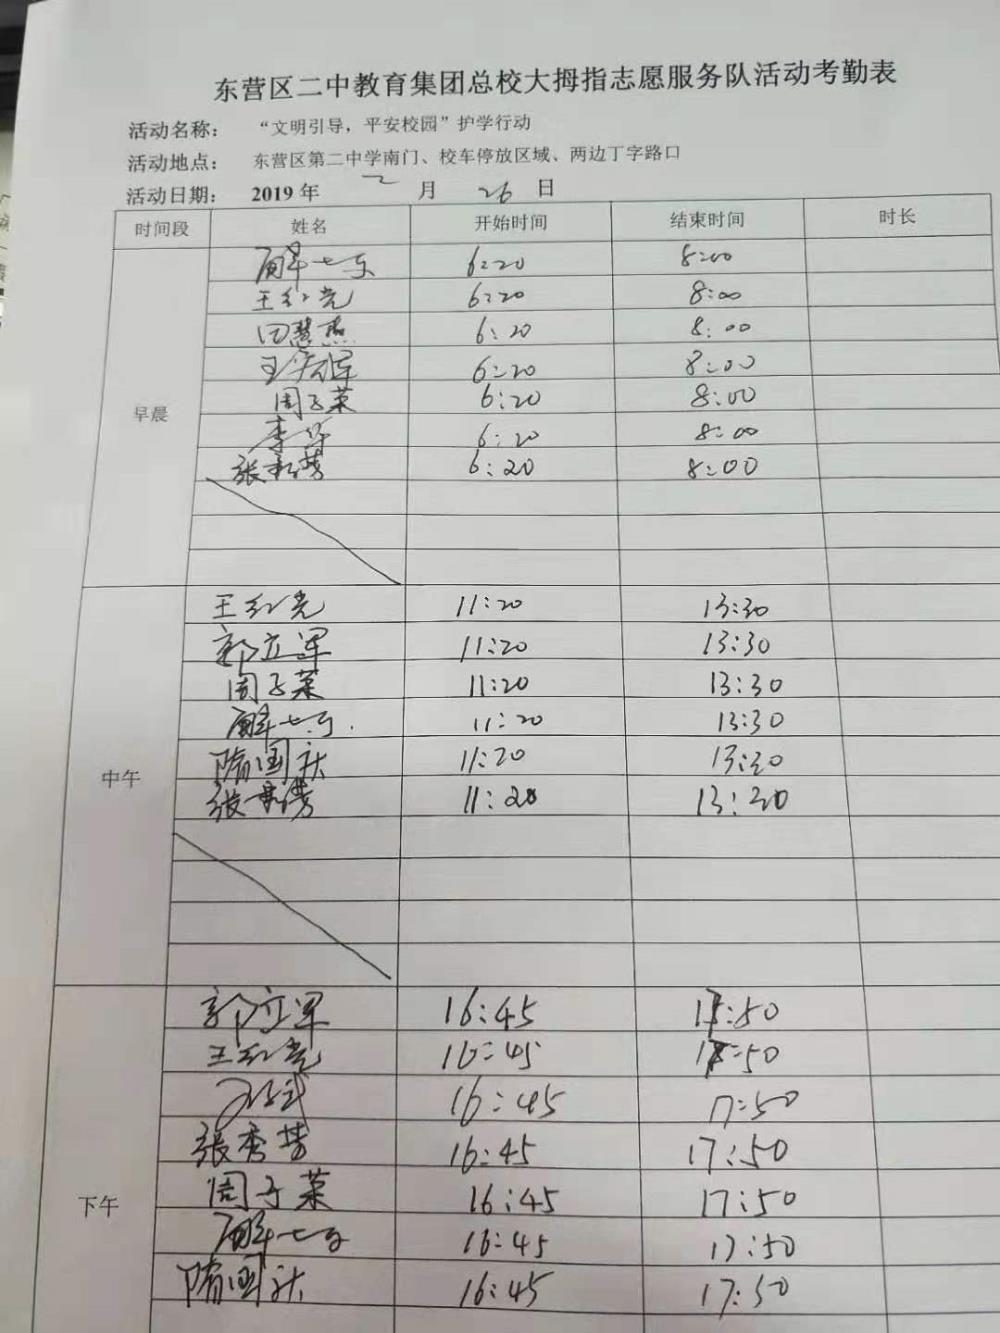 东营区二中教育集团总校大拇指志愿服务队活动考勤表
活动名称： “文明引导，平安校园”护学行动
活动地点： 东营区第二中学南门、校车停放区域、两边丁字路口
活动日期： 2019 年 二 月 26 日
时间段 姓名 开始时间 结束时间 时长
早晨
6:20 8:00
王红光 6:20 8:00
田慧燕 6:20 8:00
6:20 8:00
周子菜 6:20 8:00
李华 6:20 8:00
张秀芳 6:20 8:00
中午
王红光 11:20 13:30
郭立军 11:20 13:30
周子菜 11:20 13:30
11:20 13:30
隋国庆 11:20 13:30
张秀芳 11:20 13:30
下午
郭立军 16:45 17:50
王红光 16:45 17:50
16:45 17:50
张秀芳 16:45 17:50
周子菜 16:45 17:50
16:45 17:50
隋国庆 16:45 17:50